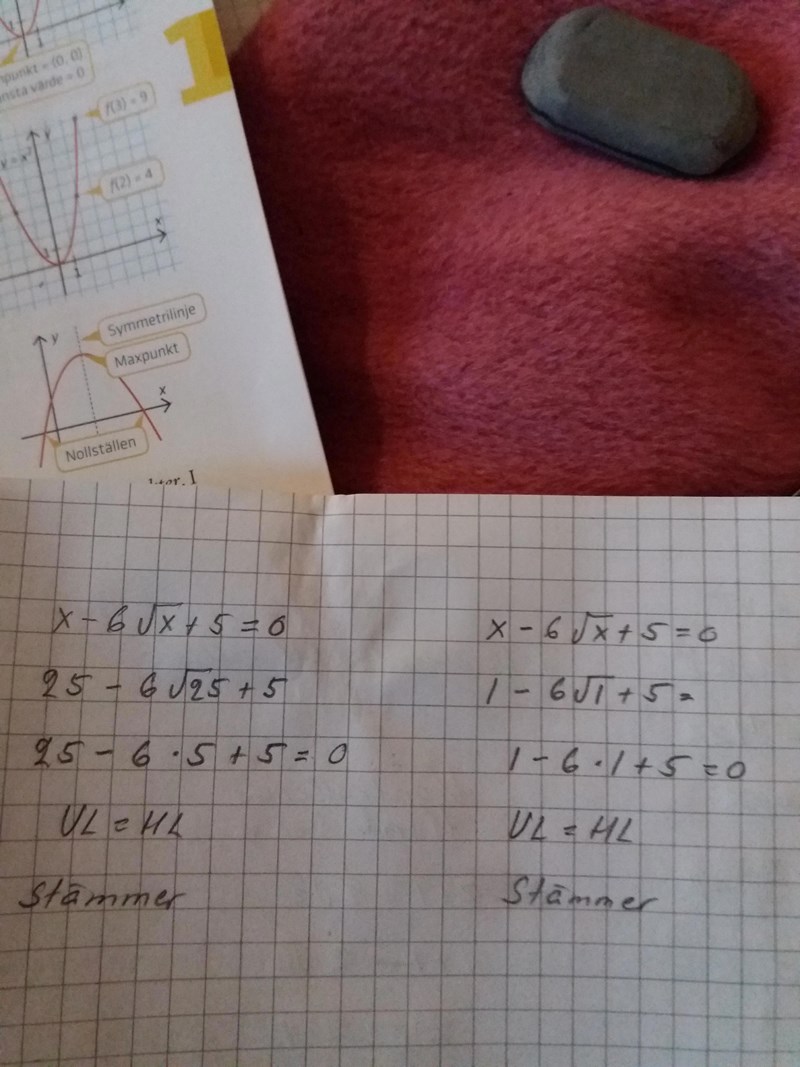 1
punkt = (0, 0)
nsta värde = 0
1
f(3) = 9
y
y = x²
f(2) = 4
x
1
1
Symmetrilinje
y
Maxpunkt
x
Nollställen
x - 6√x + 5 = 0
25 - 6√25 + 5
25 - 6 · 5 + 5 = 0
VL = HL
Stämmer
x - 6√x + 5 = 0
1 - 6√1 + 5 =
1 - 6 · 1 + 5 = 0
VL = HL
Stämmer